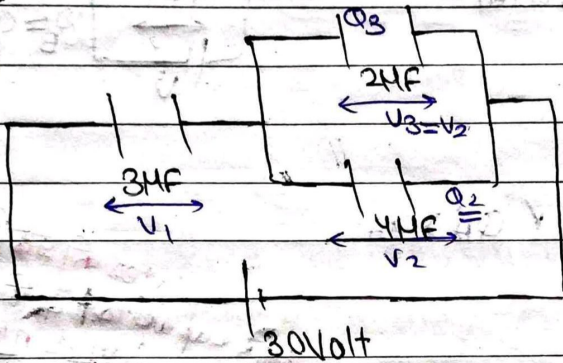 Q3
2MF
V3=V2
3MF
V1
Q2
4MF
V2
30Volt